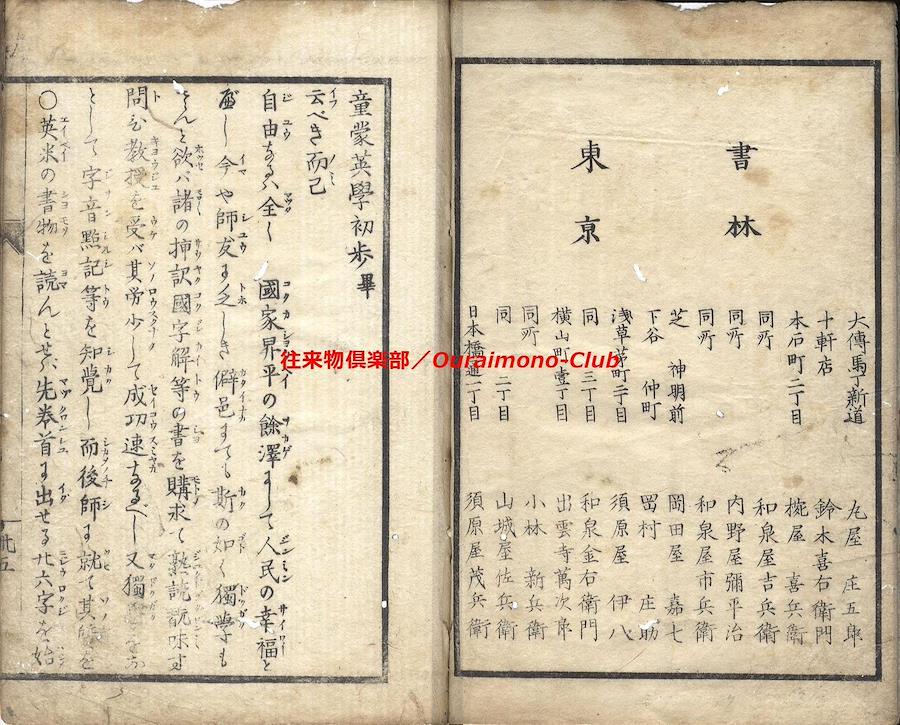 〇英米の書物を読んとせバ先巻首に出せる廿六字を始
として字音點記等を知覚し而後師に就て其
問ひ教授を受バ其労少して成功速なるべし又獨
さんと欲バ諸の挿訳國字解等の書を購求て熟読翫味す
べし今や師友に乏しき僻邑までも斯の如く獨学も
自由なるハ全く 國家昇平の餘澤にして人民の幸福と
云べき而已
童蒙英學初歩畢
東京
書林
日本橋通一丁目 須原屋茂兵衛
同 二丁目 山城屋佐兵衛
同所 小林 新兵衛
横山町壹丁目 出雲寺萬次郎
同 三丁目 和泉金右衛門
浅草茅町二丁目 須原屋 伊八
下谷 仲町 岡村 庄助
芝 神明前 岡田屋 嘉七
同所 和泉屋市兵衛
同所 内野屋彌平治
同所 和泉屋吉兵衛
本石町二丁目 椀屋 喜兵衛
十軒店 鈴木喜右衛門
大傳馬丁新道 丸屋 庄五郎
往来物倶楽部／Ouraimono-Club
廿五